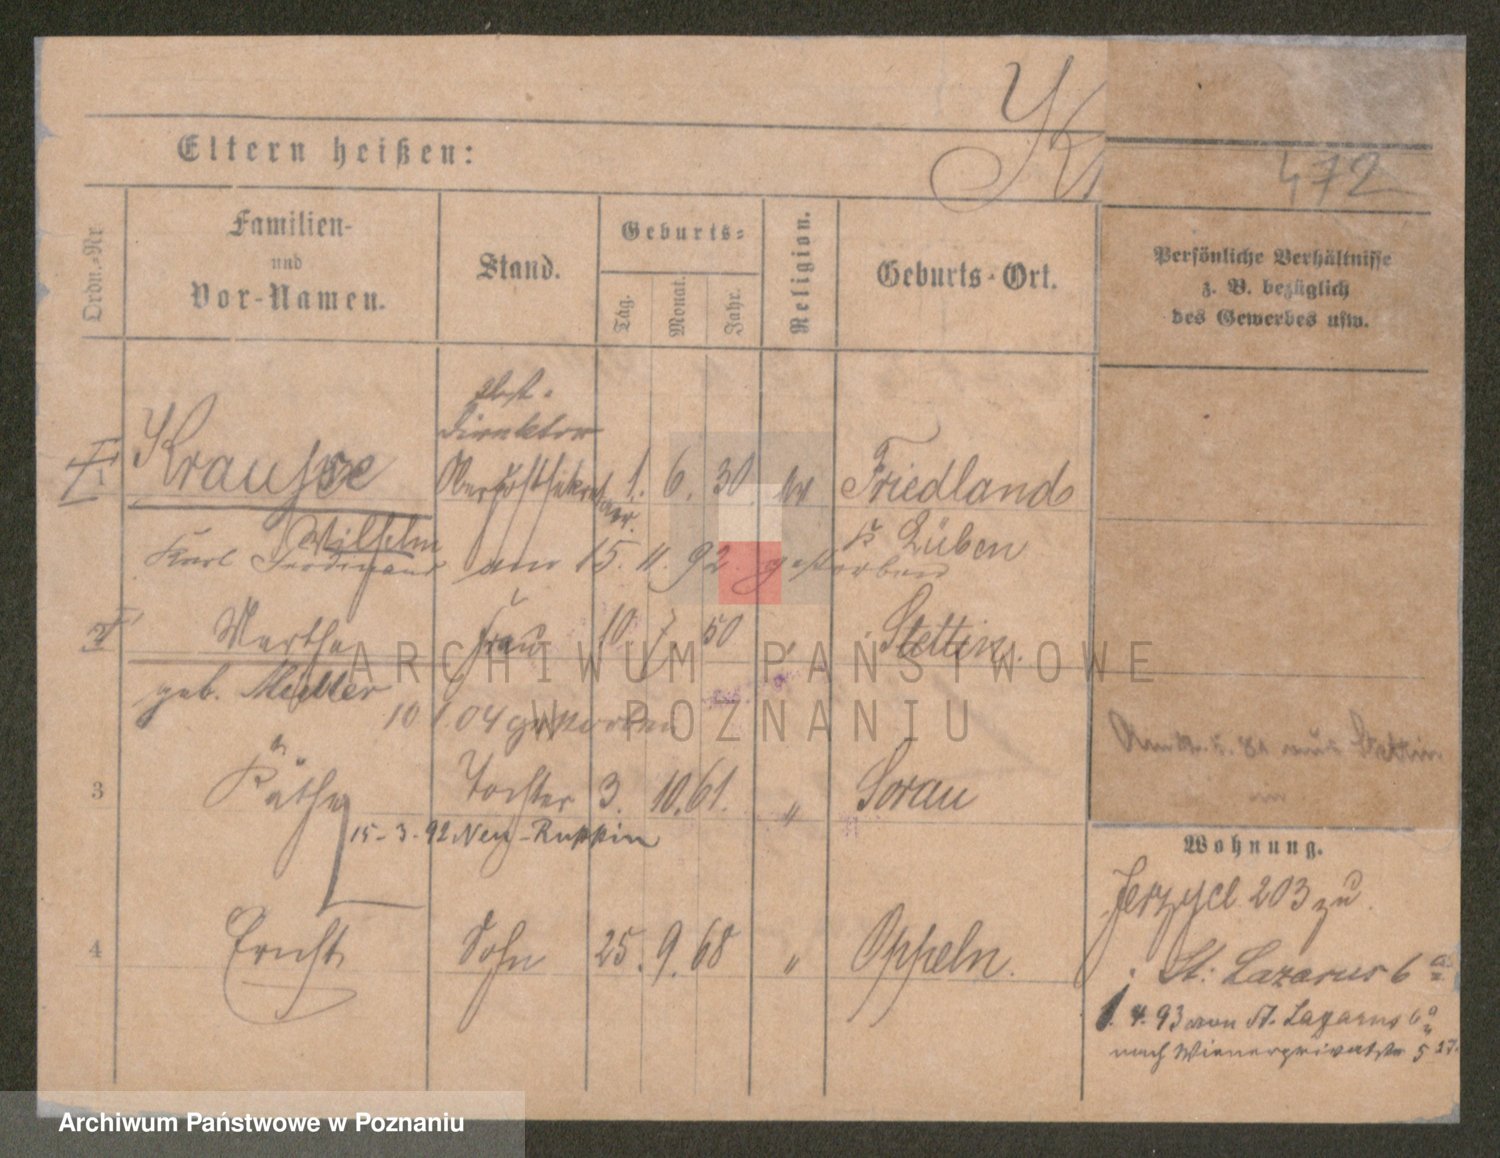 Kr
Eltern heißen:
472
Ordn.-Nr.
Familien-
und
Vor-Namen.
Stand.
Geburts-
Tag.
Monat.
Jahr.
Religion.
Geburts-Ort.
Persönliche Verhältnisse
z. B. bezüglich
des Gewerbes usw.
Direktor
1 Krause Oberpostsekretair. 1. 6. 30 ev Friedland
Wilhelm
Karl Ferdinand am 15. 11. 92. gestorben Lüben
2 Martha Frau 10 7 50 " Stettin.
geb. Müller
10 1. 04 gestorben
aus Stettin
3 Käthe Tochter 3. 10. 61. " Sorau
15-3-92 Neu-Ruppin
Wohnung.
Jerzyce 203 zu
4 Ernst Sohn 25. 9. 68 " Oppeln.
St. Lazarus 6
1. 4. 93 von St. Lazarus 6
nach Wienerprivatstr 5
ARCHIWUM PAŃSTWOWE
W POZNANIU
Archiwum Państwowe w Poznaniu